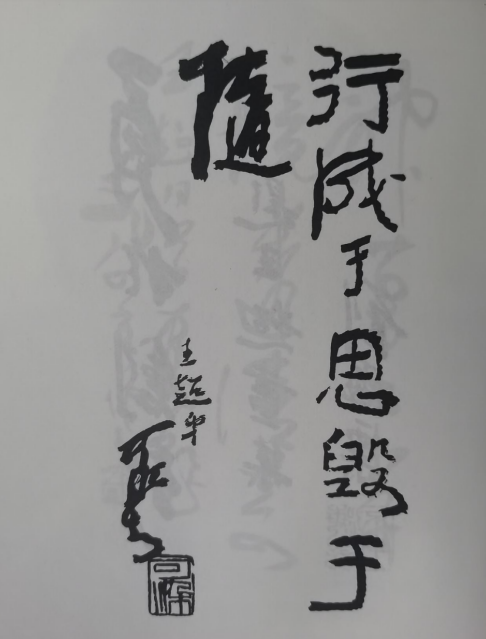 行成于思毁于
随
王超